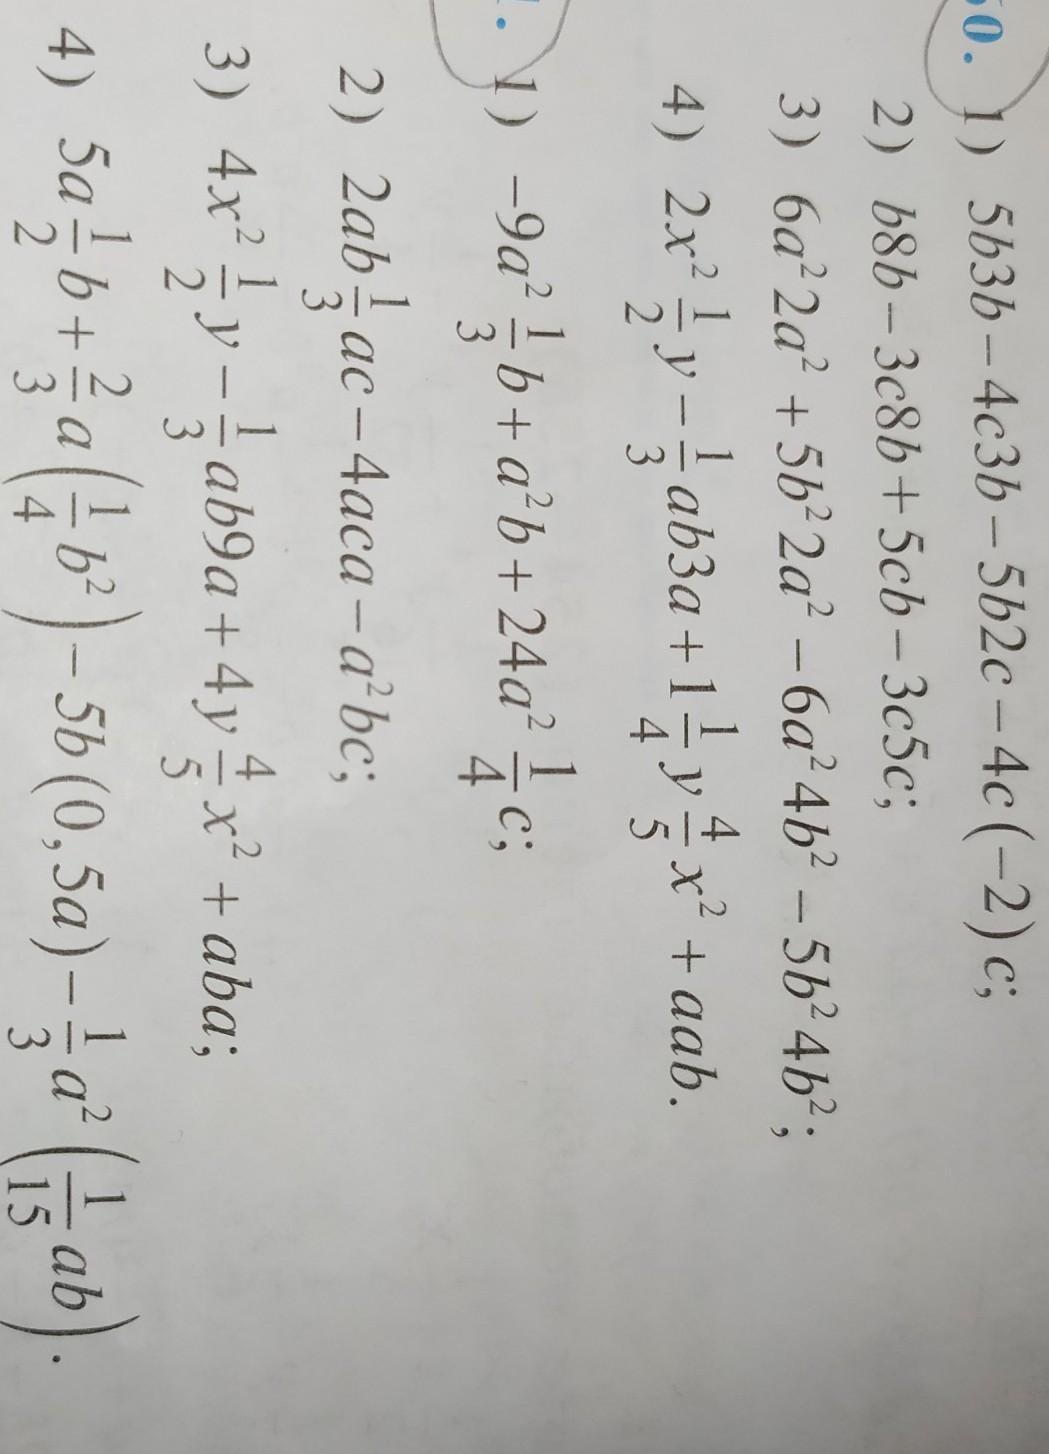 50. 1) 5b3b − 4c3b − 5b2c − 4c(−2)c;
2) b8b − 3c8b + 5cb − 3c5c;
3) 6a²2a² + 5b²2a² − 6a²4b² − 5b²4b²;
4) 2x² 1/2 y − 1/3 ab3a + 1 1/4 y 4/5 x² + aab.
1. 1) −9a² 1/3 b + a²b + 24a² 1/4 c;
2) 2ab 1/3 ac − 4aca − a²bc;
3) 4x² 1/2 y − 1/3 ab9a + 4y 4/5 x² + aba;
4) 5a 1/2 b + 2/3 a (1/4 b²) − 5b(0,5a) − 1/3 a² (1/15 ab).